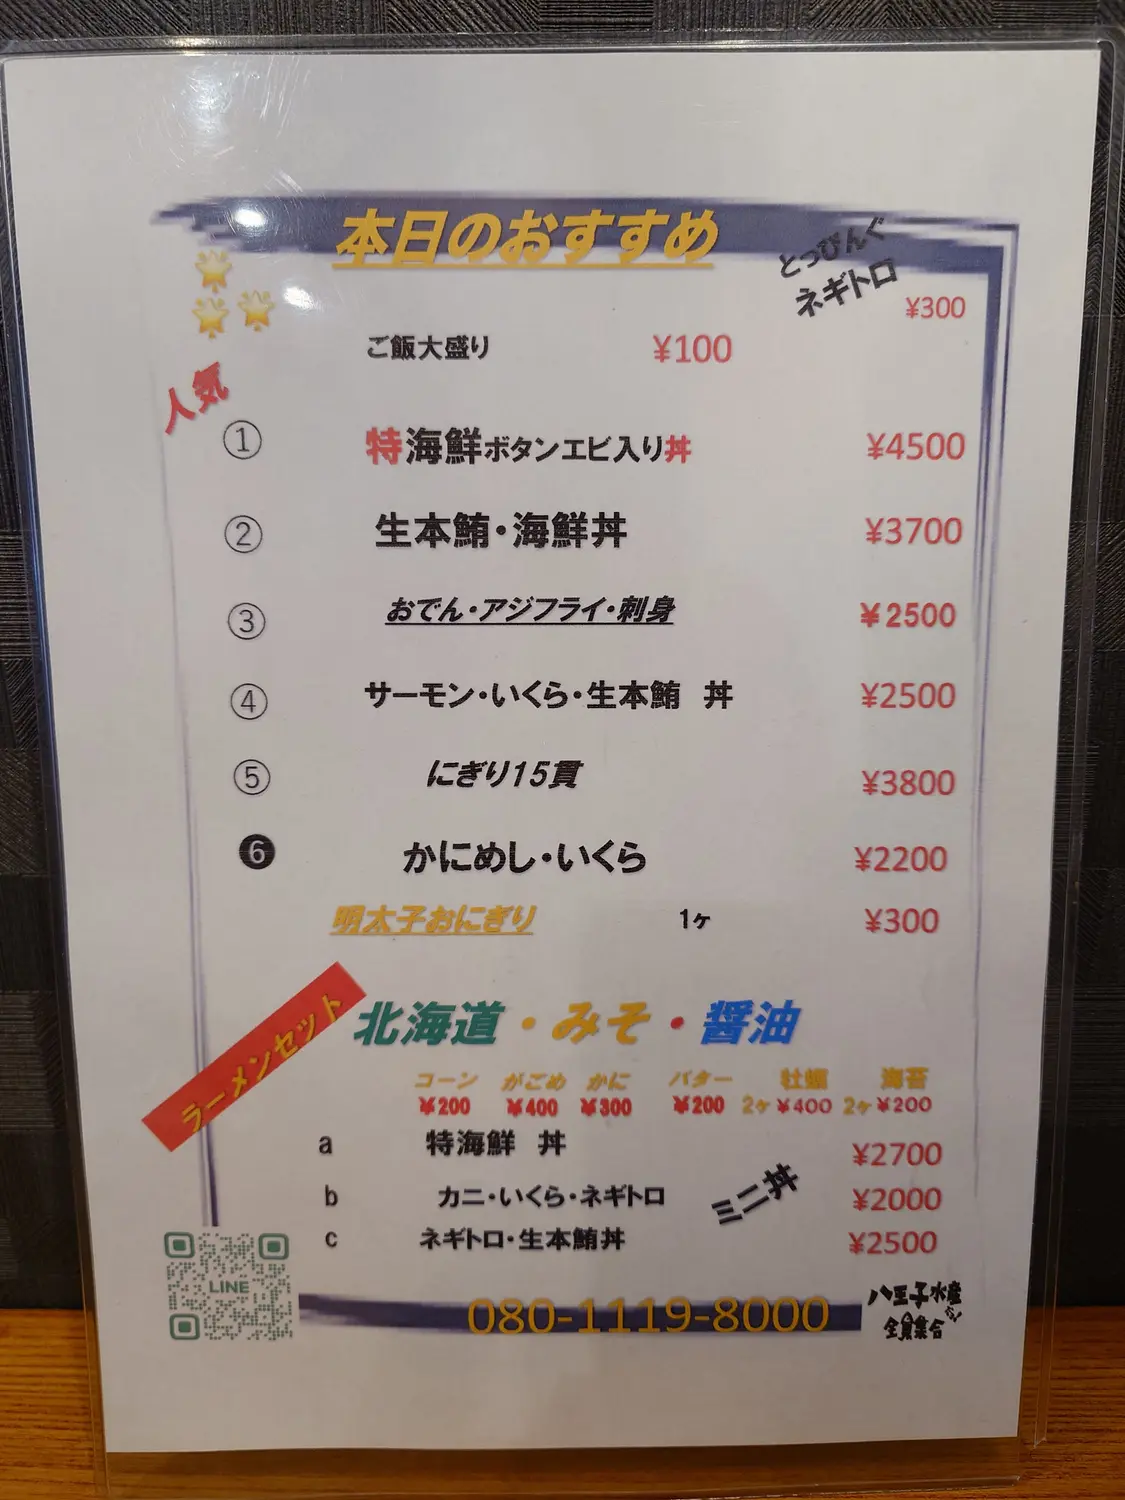 本日のおすすめ
とっぴんぐ
ネギトロ
¥300
ご飯大盛り ¥100
人気
① 特海鮮ボタンエビ入り丼 ¥4500
② 生本鮪・海鮮丼 ¥3700
③ おでん・アジフライ・刺身 ¥2500
④ サーモン・いくら・生本鮪 丼 ¥2500
⑤ にぎり15貫 ¥3800
❻ かにめし・いくら ¥2200
明太子おにぎり 1ヶ ¥300
ラーメンセット
北海道・みそ・醤油
コーン がごめ かに バター 牡蠣 海苔
¥200 ¥400 ¥300 ¥200 2ヶ ¥400 2ヶ ¥200
a 特海鮮 丼 ¥2700
b カニ・いくら・ネギトロ ¥2000
ミニ丼
c ネギトロ・生本鮪丼 ¥2500
LINE
080-1119-8000
八王子水産
だよ!
全員集合